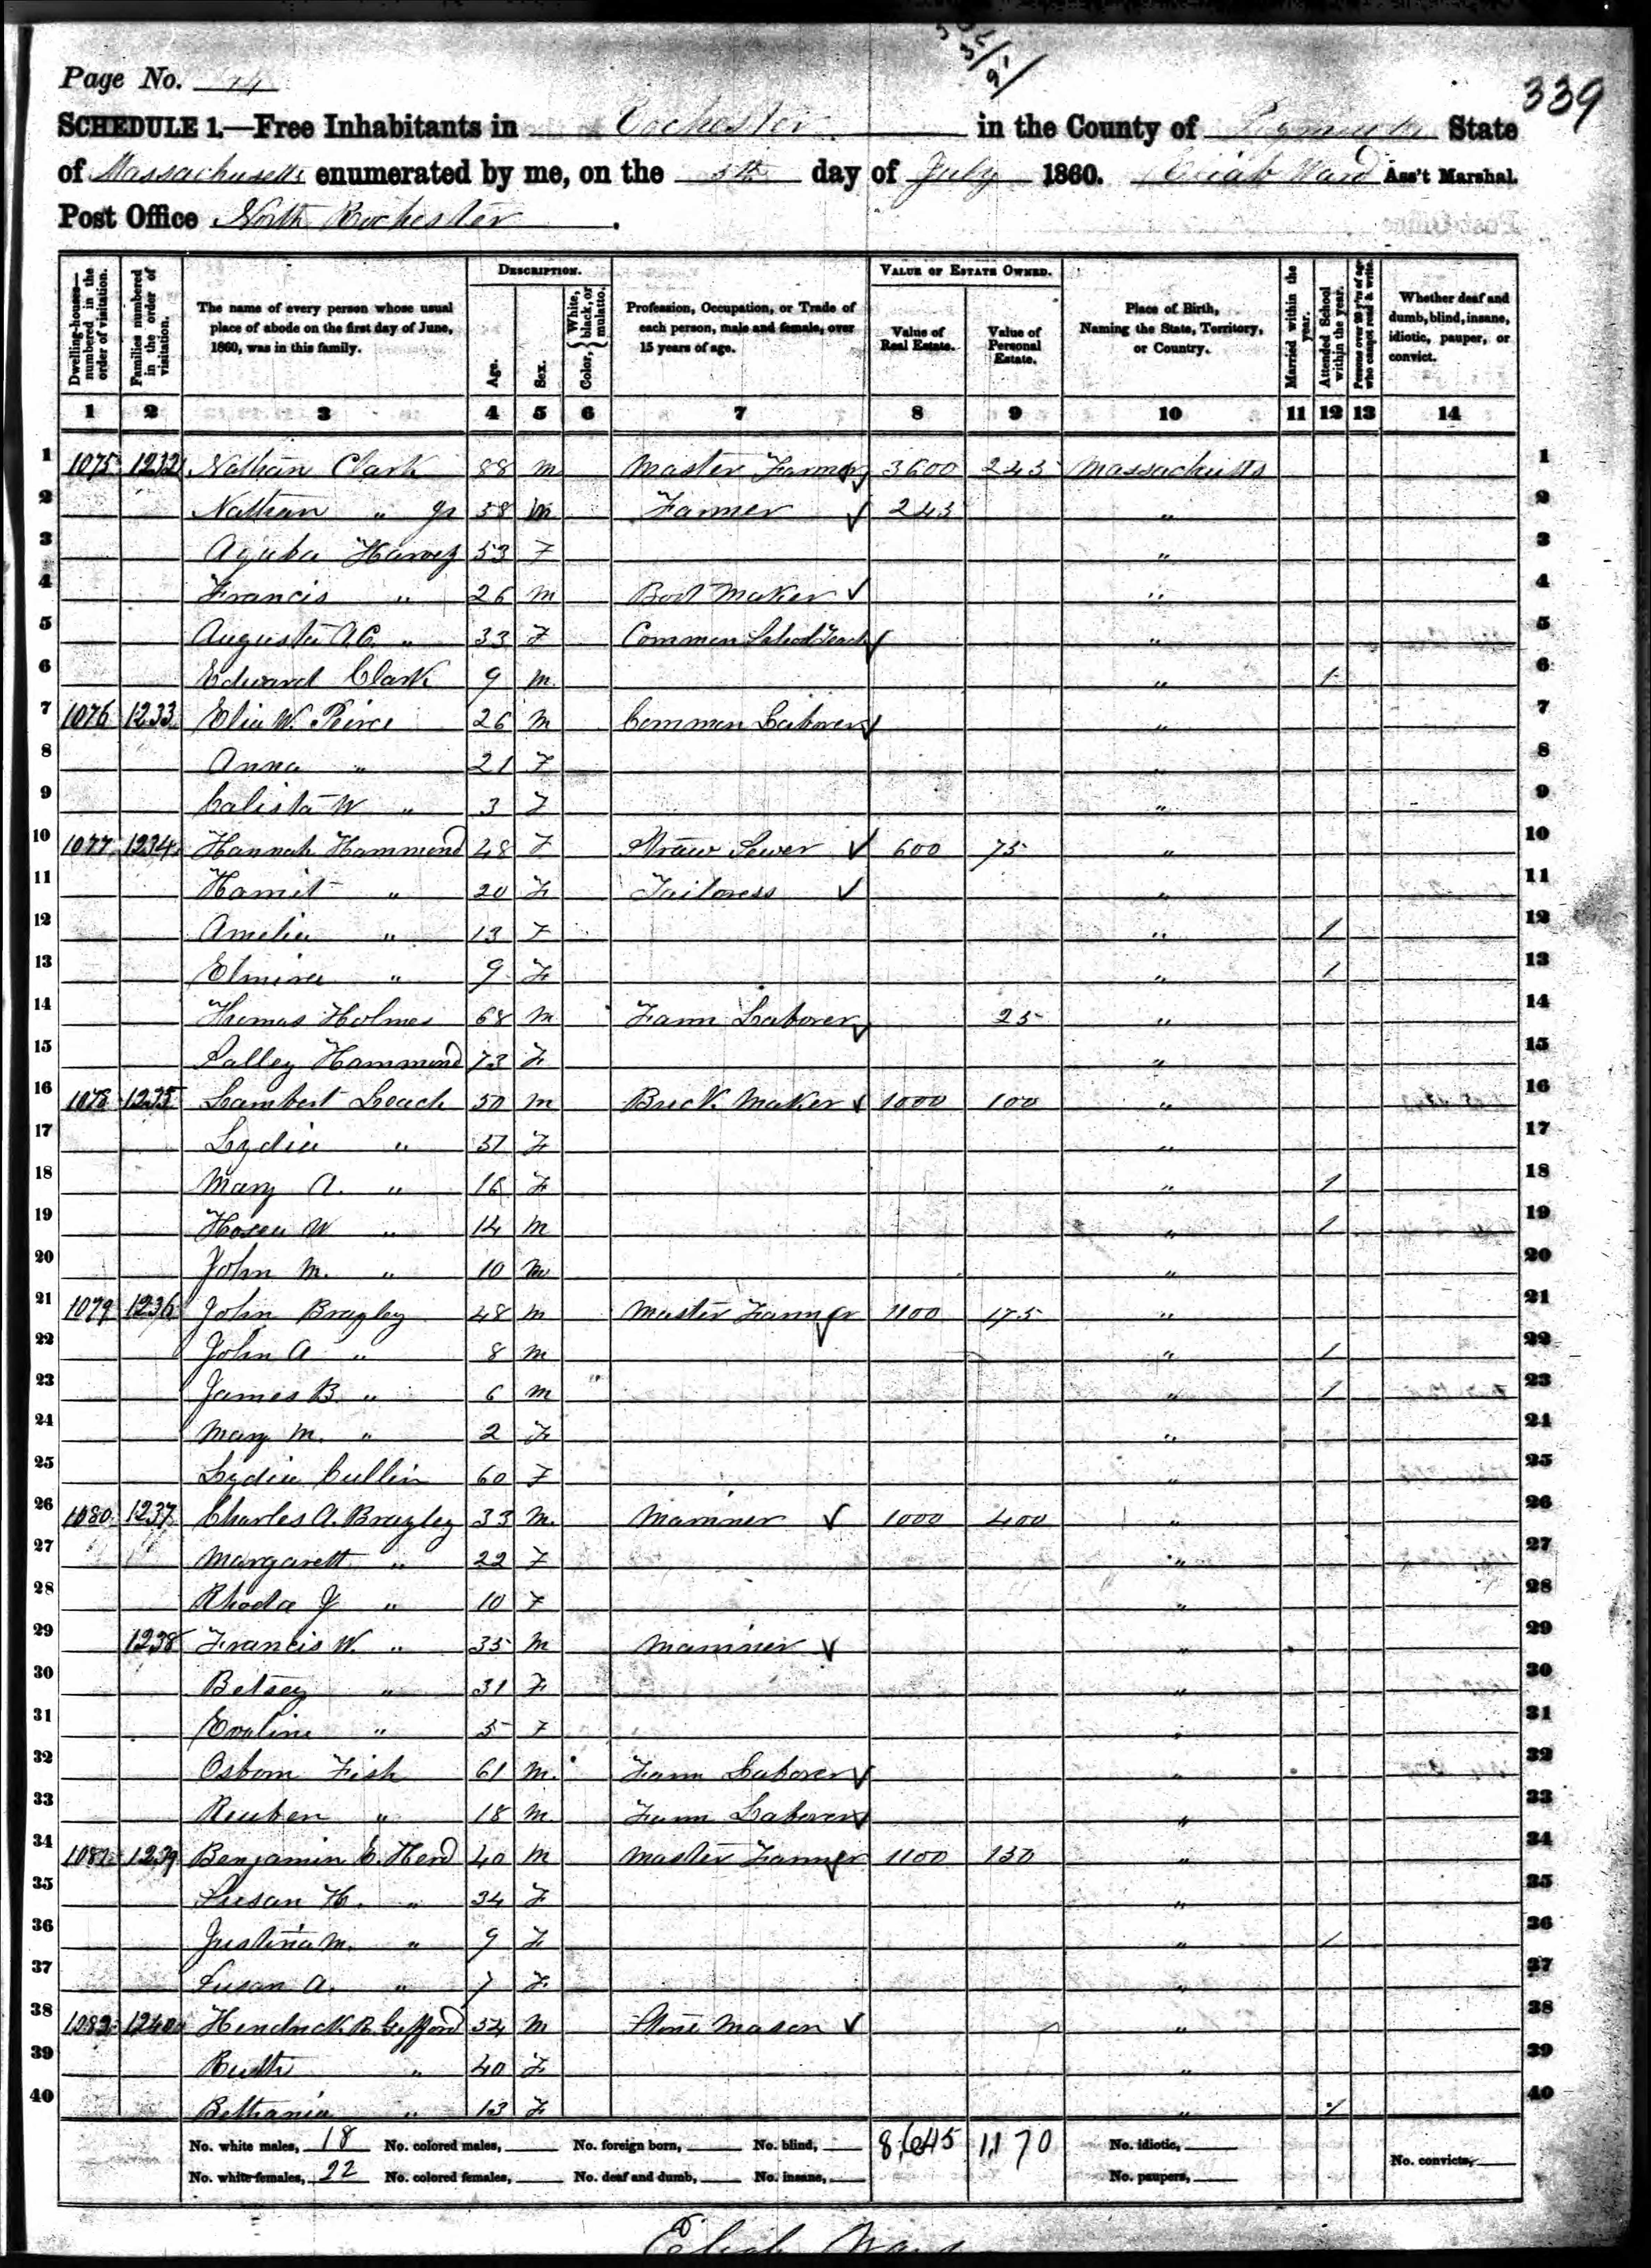 339
Page No.
SCHEDULE 1.—Free Inhabitants in Rochester in the County of Plymouth State
of Massachusetts enumerated by me, on the 5th day of July 1860. Eliab Ward Ass't Marshal.
Post Office North Rochester.
Dwelling-houses—numbered in the order of visitation.
Families numbered in the order of visitation.
The name of every person whose usual place of abode on the first day of June, 1860, was in this family.
DESCRIPTION.
Age.
Sex.
Color, { White, black, or mulatto.
Profession, Occupation, or Trade of each person, male and female, over 15 years of age.
VALUE OF ESTATE OWNED.
Value of Real Estate.
Value of Personal Estate.
Place of Birth, Naming the State, Territory, or Country.
Married within the year.
Attended School within the year.
Persons over 20 y'rs of age who cannot read & write.
Whether deaf and dumb, blind, insane, idiotic, pauper, or convict.
1 2 3 4 5 6 7 8 9 10 11 12 13 14
1 1075 1232 Nathan Clark 88 m Master Farmer 3600 243 Massachusetts 1
2 Nathan " Jr 58 m Farmer 243 " 2
3 Harvey 53 F " 3
4 Francis " 26 m Boot Maker " 4
5 Augusta A.C. " 33 F Common School Teach " 5
6 Edward Clark 9 m " 1 6
7 1076 1233 W. Peirce 26 m Common Laborer " 7
8 Anna " 21 F " 8
9 Calista W " 3 F " 9
10 1077 1234 Hannah Hammond 48 F Straw Sewer 600 75 " 10
11 Harriet " 20 F Tailoress " 11
12 Amelia " 13 F " 1 12
13 Elmira " 9 F " 1 13
14 Thomas Holmes 68 m Farm Laborer 25 " 14
15 Salley Hammond 73 F " 15
16 1078 1235 Lambert Leach 50 m Brick Maker 1000 100 " 16
17 Lydia " 51 F " 17
18 Mary A. " 16 F " 1 18
19 Hosea W " 14 m " 1 19
20 John M. " 10 m " 20
21 1079 1236 John Bragley 48 m Master Farmer 1100 175 " 21
22 John A " 8 m " 1 22
23 James B. " 6 m " 1 23
24 Mary M. " 2 F " 24
25 Lydia Cullin 60 F " 25
26 1080 1237 Charles A. Bragley 33 m. Mariner 1000 400 " 26
27 Margarett " 22 F " 27
28 Rhoda J " 10 F " 28
29 1238 Francis W. " 35 m Mariner " 29
30 Betsey " 31 F " 30
31 Evaline " 5 F " 31
32 Osborn Fish 61 m. Farm Laborer " 32
33 Reuben " 18 m. Farm Laborer " 33
34 1081 1239 Benjamin C. Herd 40 m Master Farmer 1100 130 " 34
35 Susan H. " 34 F " 35
36 Justina M. " 9 F " 1 36
37 Susan A. " 7 F " 37
38 1082 1240 Hendrick R. Gifford 54 m Stone Mason " 38
39 Ruth " 40 F " 39
40 Bethania " 13 F " 1 40
No. white males, 18 No. colored males, No. foreign born, No. blind, 8,645 1,170 No. idiotic,
No. white females, 22 No. colored females, No. deaf and dumb, No. insane, No. paupers, No. convicts,
Eliab Ward